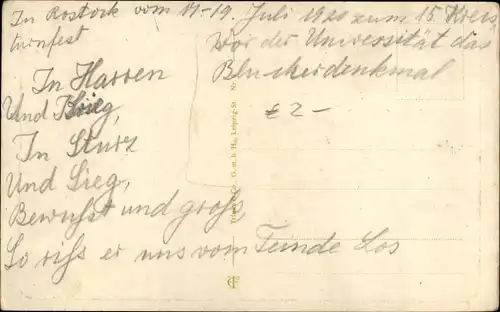 In Rostock vom 17-19. Juli 1920 zum 15. Kreis
turnfest
Vor der Universität das
Blucherdenkmal
£ 2-
In Harren
Und Krieg,
In Sturz
Und Sieg,
Bewußt und groß,
So riß er uns vom Feinde Los
G. m. b. H., Leipzig-St. Nr.